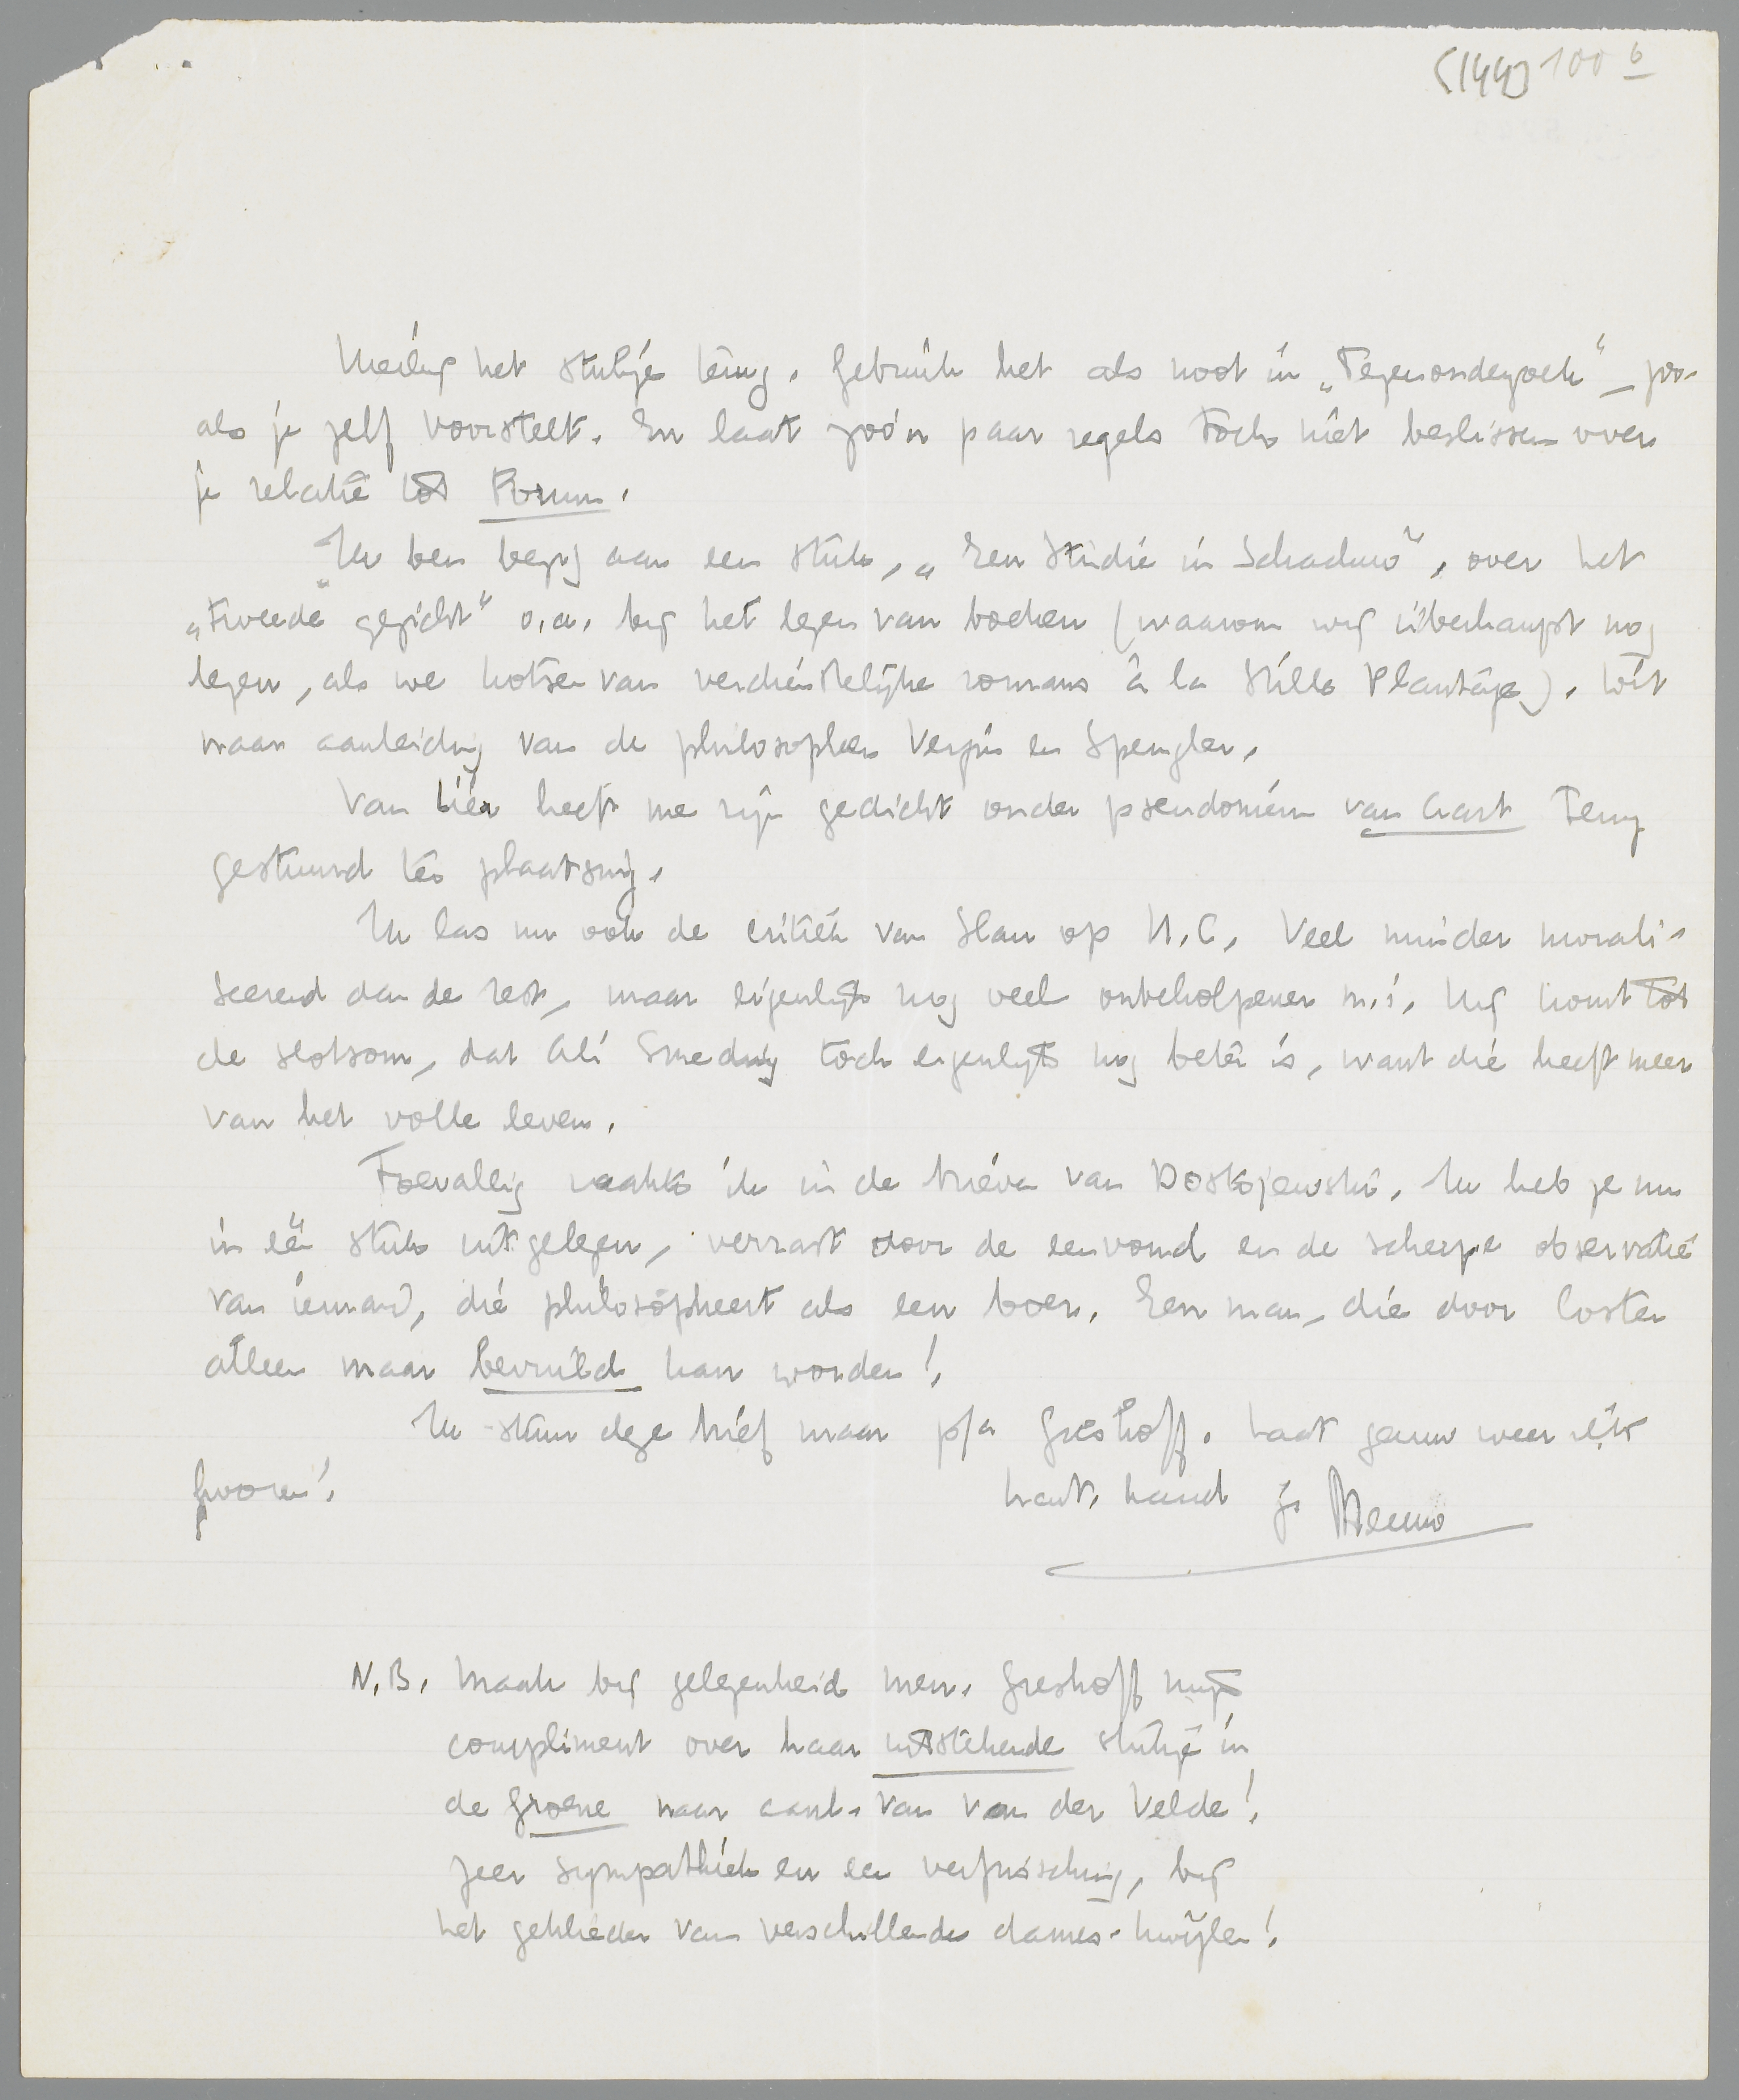 (144) 100 b
Hierbij het stukje terug. Gebruik het als noot in „Tegenonderzoek” – zoo-
als je zelf voorstelt. En laat zoo'n paar regels toch niet beslissen over
je relatie tot Forum.
Ik ben bezig aan een stuk, „Een Studie in Schaduw”, over het
„tweede gezicht” o.a. bij het lezen van boeken (waarom wij überhaupt nog
lezen, als we kotsen van verdienstelijke romans à la Stille Plantage). Dit
naar aanleiding van de philosophen Vezin en Spengler.
Van Lier heeft me zijn gedicht onder pseudoniem van Aart terug
gestuurd ter plaatsing.
Ik las nu ook de critiek van Stan op U.C. Veel minder morali-
seerend dan de rest, maar eigenlijk nog veel onbeholpener m.i. Hij komt tot
de slotsom, dat Ali Smeding toch eigenlijk nog beter is, want die heeft meer
van het volle leven.
Toevallig raakte ik in de brieven van Dostojewski. Ik heb ze nu
in één stuk uitgelezen, verrast door de eenvoud en de scherpe observatie
van iemand, die philosopheert als een boer. Een man, die door Coster
alleen maar bevuild kan worden!
Ik stuur deze brief maar p/a Greshoff. Laat gauw weer iets
hooren!
hart. hand je Menno
N.B. Maak bij gelegenheid mevr. Greshoff mijn
compliment over haar uitstekende stukje in
de Groene naar aanl. van van der Velde!
Zeer sympathiek en een verfrissching, bij
het geklieder van verschillende dames-kwijlen!